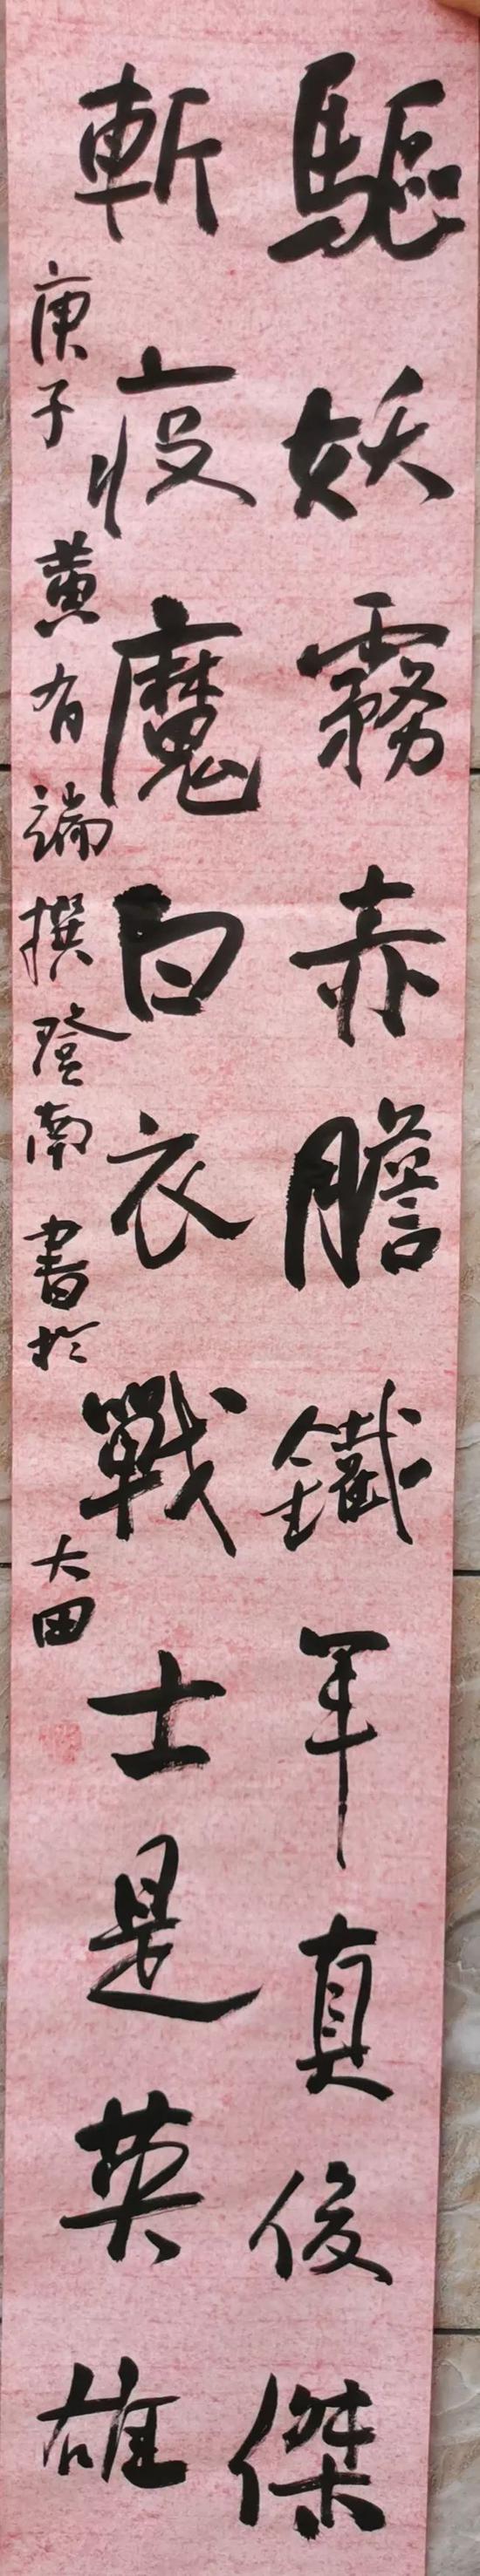 驅妖霧赤膽鐵軍真俊傑
斬疫魔白衣戰士是英雄
庚子 黃有端撰登南書於大田